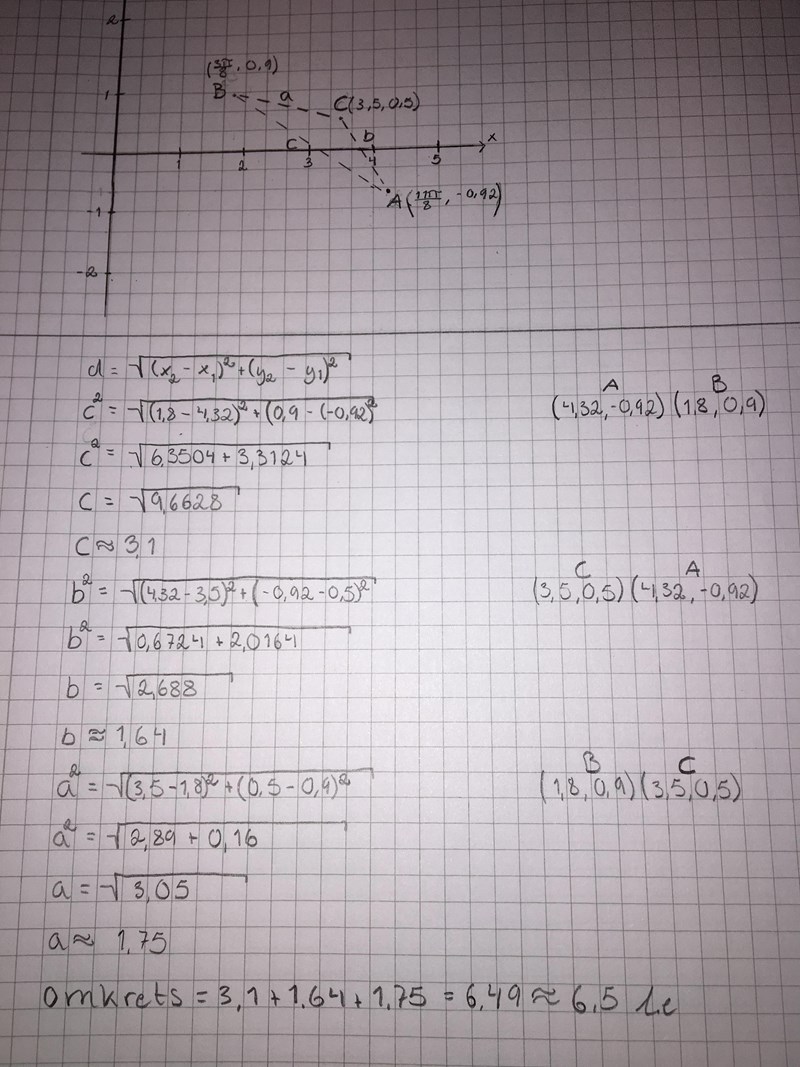 2
(3π/8, 0,9)
1
B
a
C(3,5,0,5)
c
b
x
1 2 3 4 5
A(11π/8, -0,92)
-1
-2
d = √(x₂ - x₁)² + (y₂ - y₁)²
c² = √(1,8 - 4,32)² + (0,9 - (-0,92)²
A B
(4,32, -0,92) (1,8, 0,9)
c² = √6,3504 + 3,3124
c = √9,6628
c ≈ 3,1
b² = √(4,32 - 3,5)² + (-0,92 - 0,5)²
C A
(3,5, 0,5) (4,32, -0,92)
b² = √0,6724 + 2,0164
b = √2,688
b ≈ 1,64
a² = √(3,5 - 1,8)² + (0,5 - 0,9)²
B C
(1,8, 0,9) (3,5, 0,5)
a² = √2,89 + 0,16
a = √3,05
a ≈ 1,75
omkrets = 3,1 + 1,64 + 1,75 = 6,49 ≈ 6,5 l.e